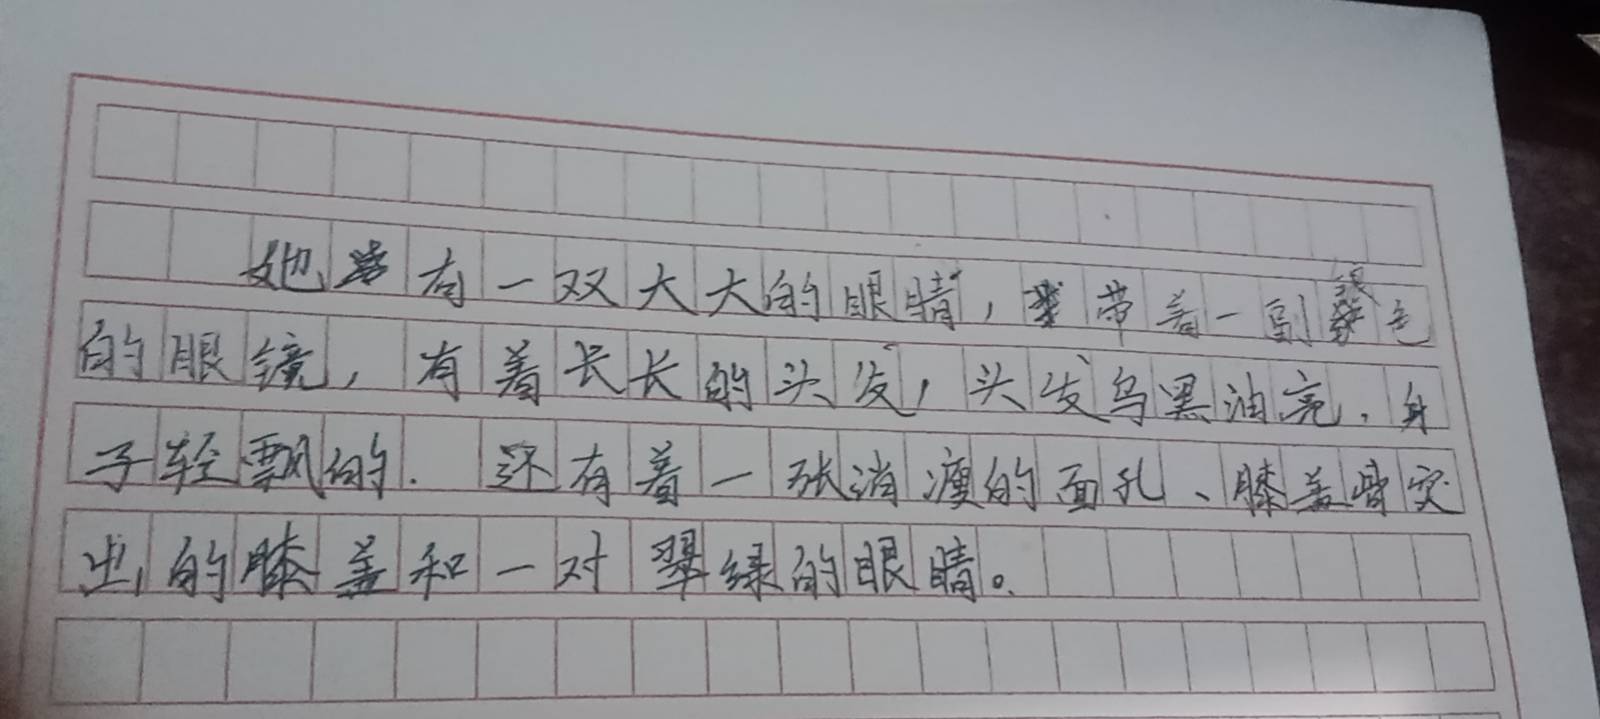 她有一双大大的眼睛，带着一副银色
的眼镜，有着长长的头发，头发乌黑油亮，身
子轻飘的. 还有着一张消瘦的面孔、膝盖骨突
出的膝盖和一对翠绿的眼睛。